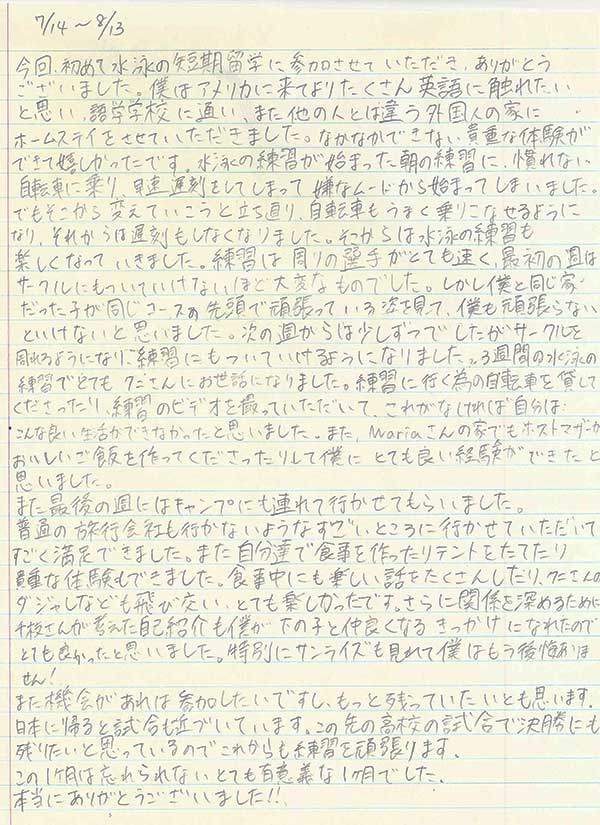 7/14 ~ 8/13
今回、初めて水泳の短期留学に参加させていただき、ありがとう
ございました。僕はアメリカに来てよりたくさん英語に触れたい
と思い、語学学校に通い、また他の人とは違う外国人の家に
ホームステイをさせていただきました。なかなかできない貴重な体験が
できて嬉しかったです。水泳の練習が始まった朝の練習に、慣れない
自転車に乗り、早速遅刻をしてしまって嫌なムードから始まってしまいました。
でもそこから変えていこうと立ち直り、自転車もうまく乗りこなせるように
なり、それからは遅刻もしなくなりました。そこからは水泳の練習も
楽しくなっていきました。練習は周りの選手がとても速く、最初の週は
サークルにもついていけないほど大変なものでした。しかし僕と同じ家
だった子が同じコースの先頭で頑張っている姿を見て、僕も頑張らない
といけないと思いました。次の週からは少しずつでしたがサークルを
周れるようになり、練習にもついていけるようになりました。3週間の水泳の
練習でとてもクニさんにお世話になりました。練習に行く為の自転車を貸して
くださったり、練習のビデオを撮っていただいて、これがなければ自分は
こんな良い生活ができなかったと思いました。また、Mariaさんの家でもホストマザーが
おいしいご飯を作ってくださったりして僕にとても良い経験ができたと
思いました。
また最後の週にはキャンプにも連れて行かせてもらいました。
普通の旅行会社も行かないようなすごいところに行かせていただいて
すごく満足できました。また自分達で食事を作ったりテントをたてたり
貴重な体験もできました。食事中にも楽しい話をたくさんしたり、クニさんの
ダジャレなども飛び交い、とても楽しかったです。さらに関係を深めるために
千枝さんが考えた自己紹介も僕が下の子と仲良くなるきっかけになれたので
とても良かったと思いました。特別にサンライズも見れて僕はもう後悔ありま
せん!
また機会があれば参加したいですし、もっと残っていたいとも思います。
日本に帰ると試合も近づいています。この先の高校の試合で決勝にも
残りたいと思っているのでこれからも練習を頑張ります。
この1ヶ月は忘れられないとても有意義な1ヶ月でした。
本当にありがとうございました!!